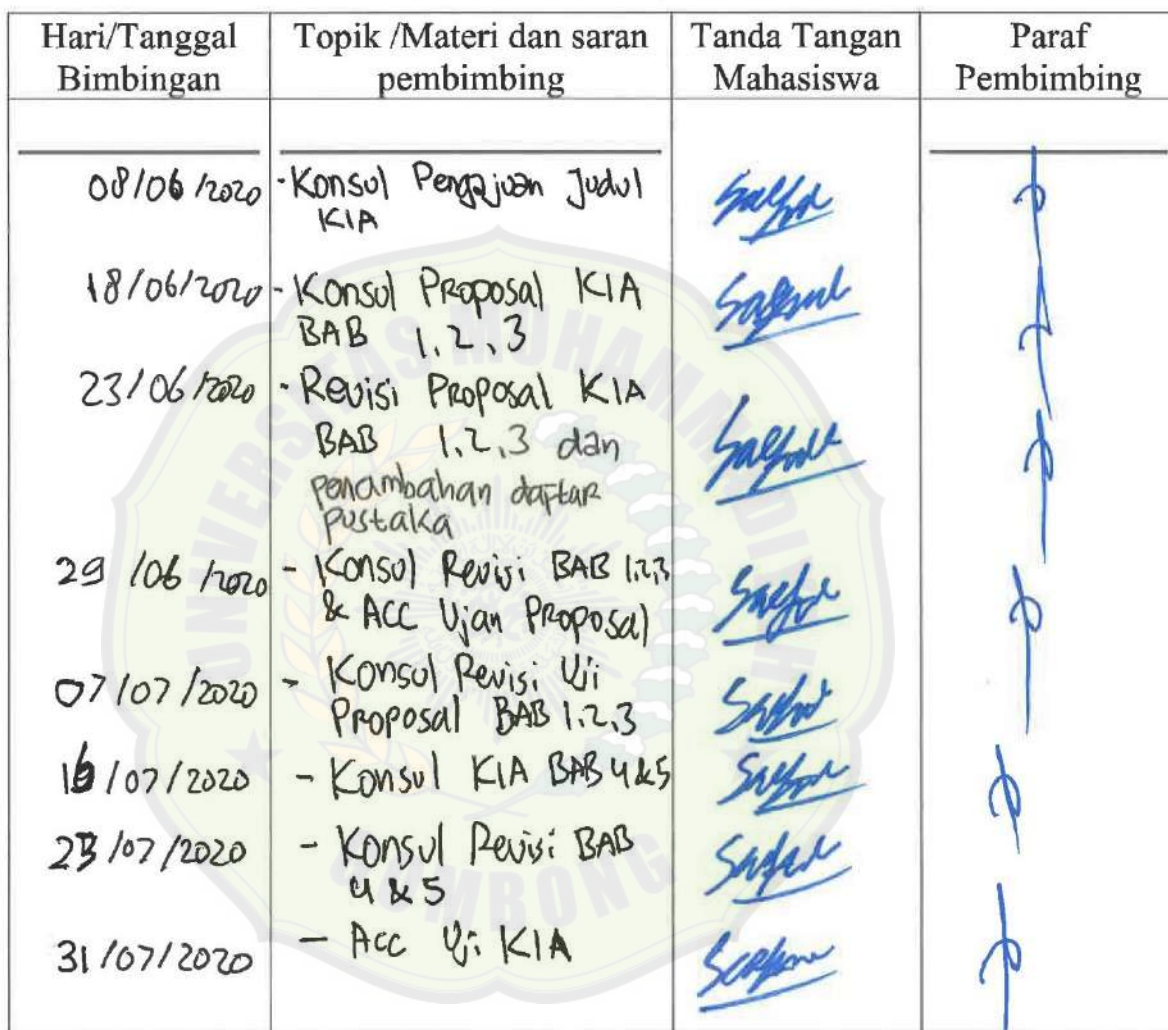 Hari/Tanggal Bimbingan
Topik /Materi dan saran pembimbing
Tanda Tangan Mahasiswa
Paraf Pembimbing
08/06/2020 - Konsul Pengajuan Judul
KIA
18/06/2020 - Konsul Proposal KIA
BAB 1, 2, 3
23/06/2020 - Revisi Proposal KIA
BAB 1, 2, 3 dan
penambahan daftar
pustaka
29/06/2020 - Konsul Revisi BAB 1,2,3
& ACC Ujan Proposal
07/07/2020 - Konsul Revisi Uji
Proposal BAB 1,2,3
16/07/2020 - Konsul KIA BAB 4 & 5
23/07/2020 - Konsul Revisi BAB
4 & 5
31/07/2020 - Acc Uji KIA
UNIVERSITAS MUHAMMADIYAH
GOMBONG